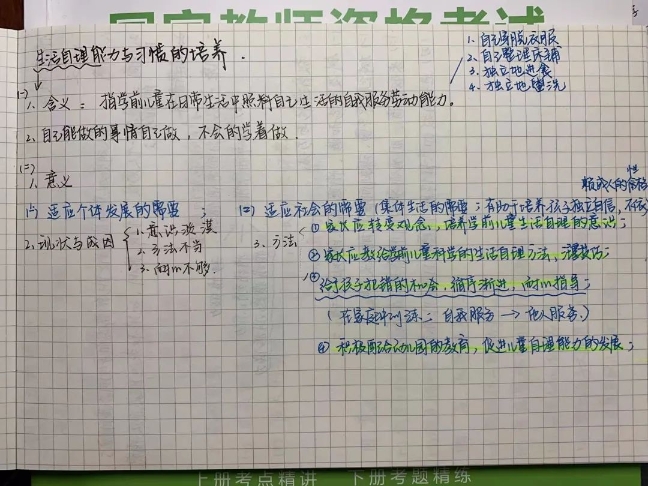 国家教师资格考试
生活自理能力与习惯的培养.
1. 自己穿脱衣服
2. 自己整理床铺
3. 独立地进食
4. 独立地盥洗
(一)
1. 含义: 指学前儿童在日常生活中照料自己生活的自我服务劳动能力。
2. 自己能做的事情自己做, 不会的学着做.
(二)
1. 意义
(1) 适应个体发展的需要;
(2) 适应社会的需要 (集体生活的需要; 有助于培养孩子独立自信, 不依
赖成人的性格
2. 现状与成因
1. 意识淡漠
2. 方法不当
3. 耐心不够.
3. 方法
① 家长应转变观念, 培养学前儿童生活自理的意识;
② 家长应教给学前儿童科学的生活自理方法, 技巧;
③ 给予孩子犯错的机会, 循序渐进, 耐心指导;
(在家庭中训练: 自我服务 → 他人服务.)
④ 积极配合幼儿园的教育, 促进儿童自理能力的发展;
上册考点精讲 下册考题精练